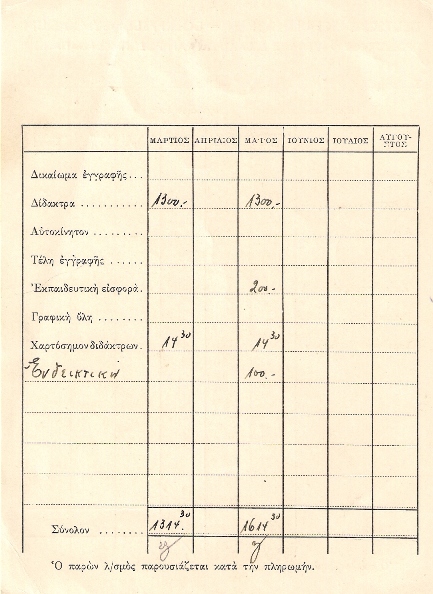 ΜΑΡΤΙΟΣ ΑΠΡΙΛΙΟΣ ΜΑΪΟΣ ΙΟΥΝΙΟΣ ΙΟΥΛΙΟΣ ΑΥΓΟΥ-
ΣΤΟΣ
Δικαίωμα ἐγγραφῆς ...
Δίδακτρα ........... 1300.- 1300.-
Αὐτοκίνητον .........
Τέλη ἐγγραφῆς ......
Ἐκπαιδευτικὴ εἰσφορά. 200.-
Γραφικὴ ὕλη ........
Χαρτόσημον διδάκτρων. 14 30 14 30
Ἐνδεικτικὰ 100.-
Σύνολον ........ 1314. 30 1614 30
Ὁ παρὼν λ/σμὸς παρουσιάζεται κατὰ τὴν πληρωμήν.